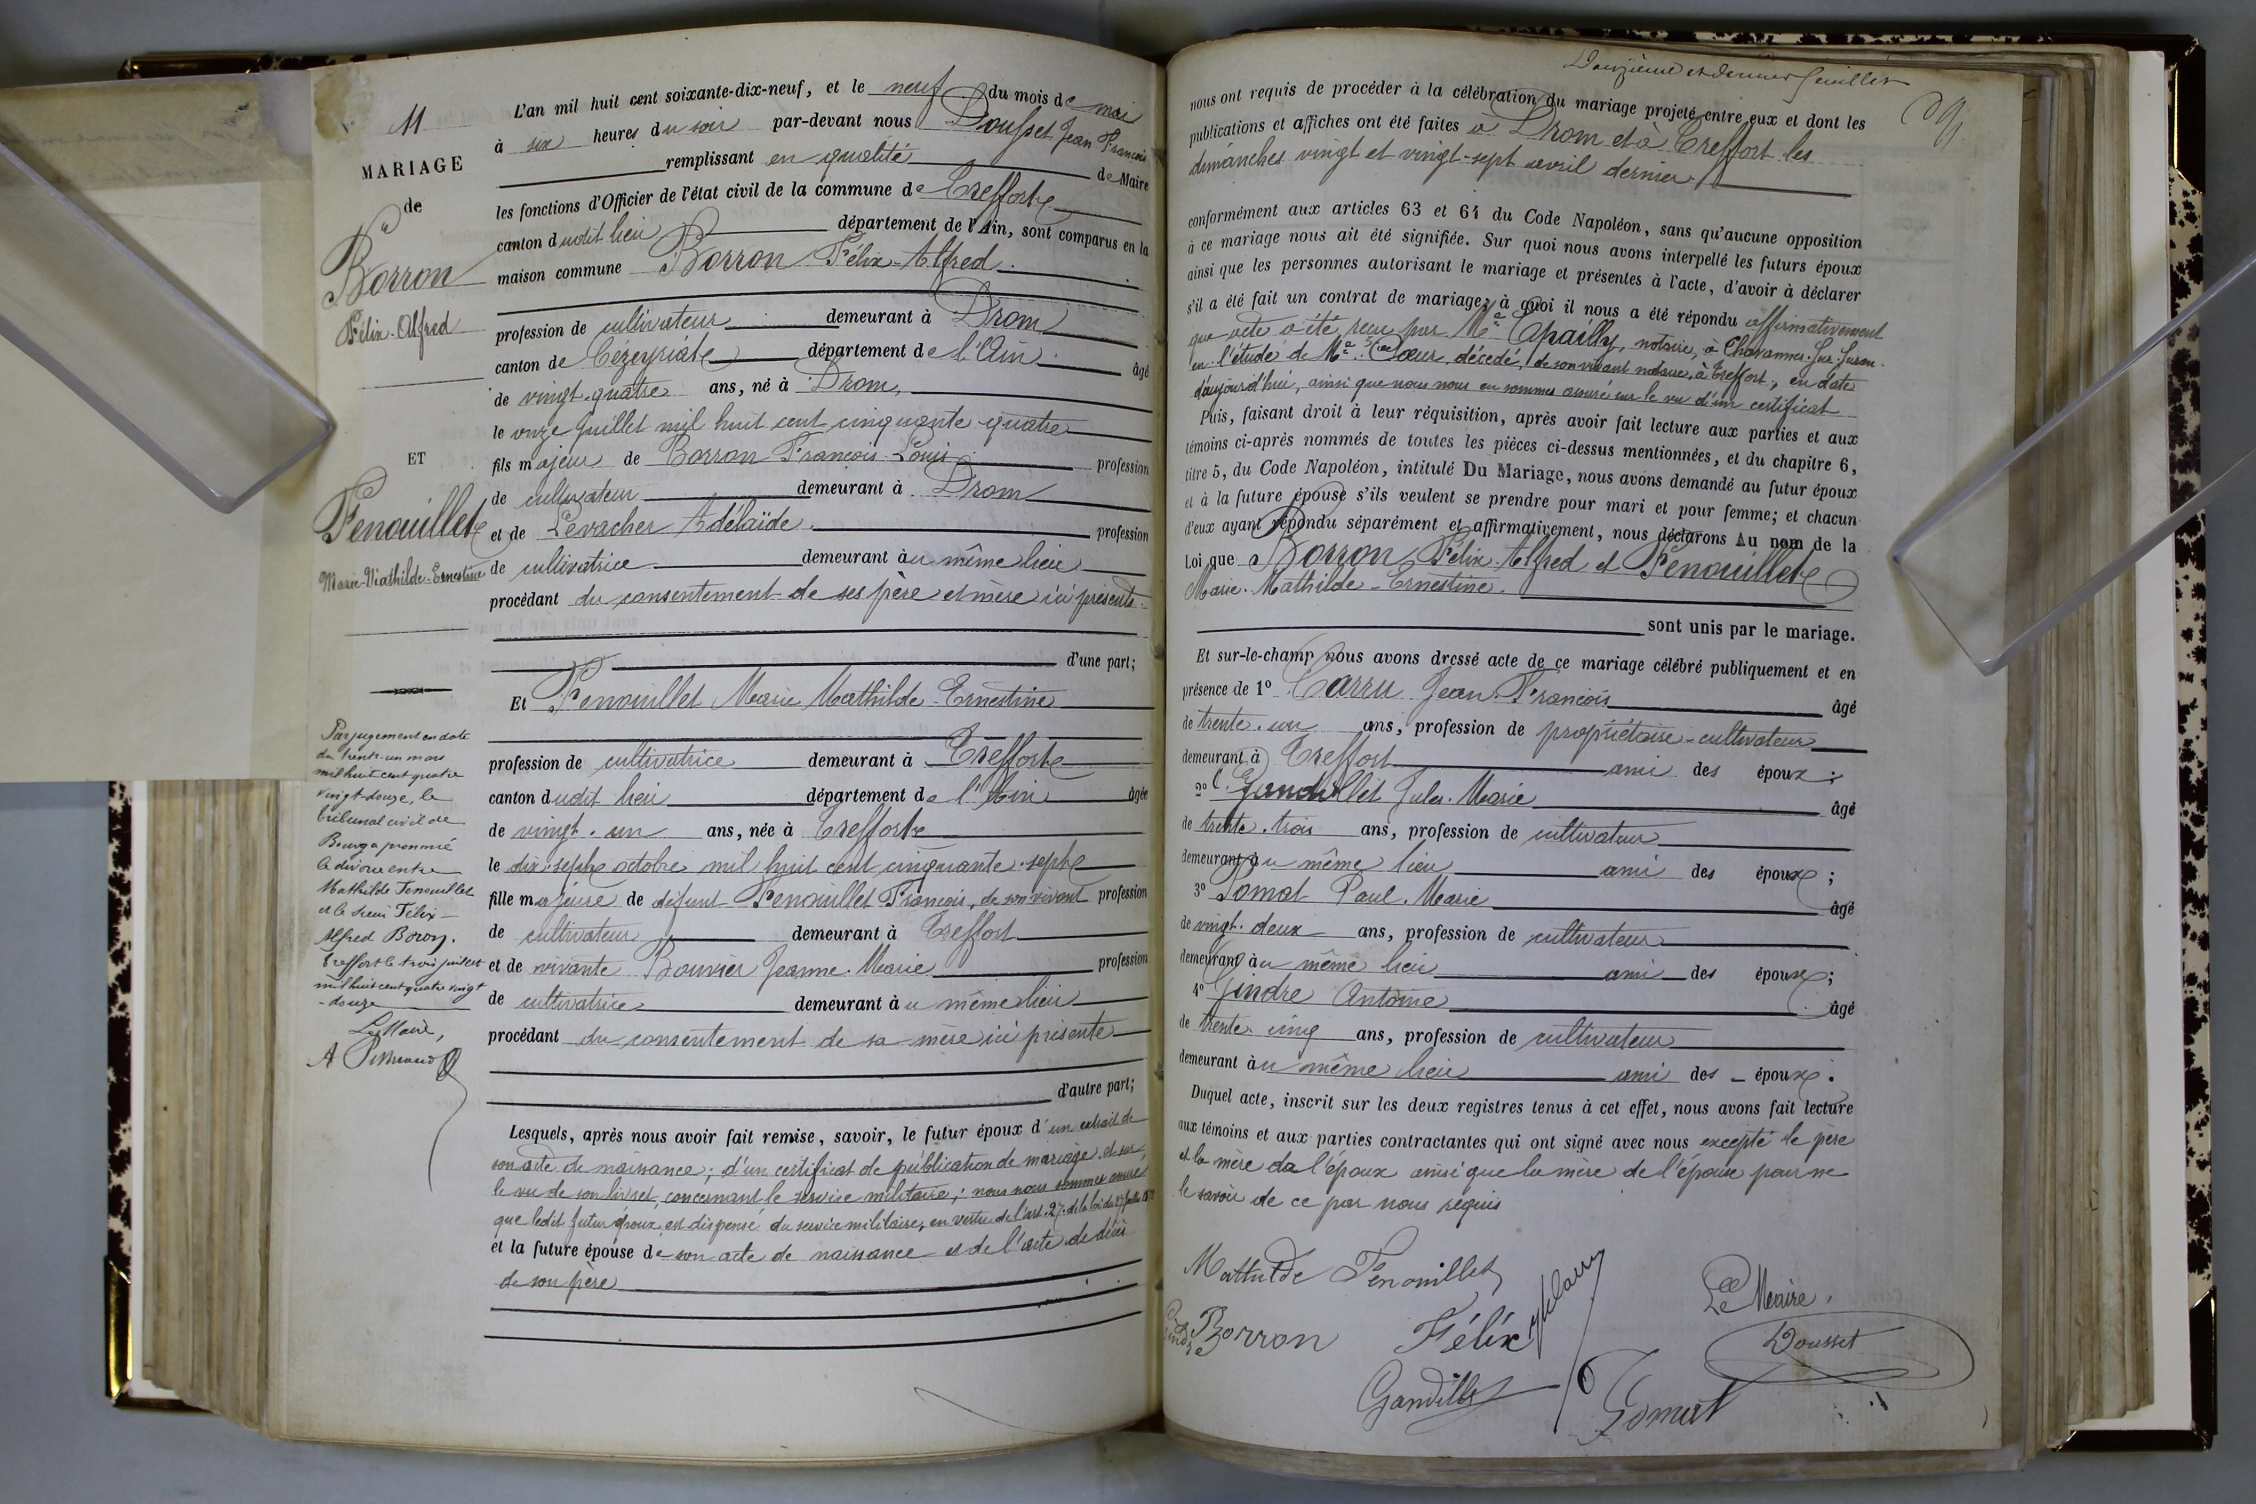 11
MARIAGE
de
Borron
Félix-Alfred
ET
Fenouillet
Marie-Mathilde-Ernestine
Par jugement en date
du trente-un mars
mil huit cent quatre
vingt-douze, le
tribunal civil de
Bourg a prononcé
le divorce entre
Mathilde Fenouillet
et le sieur Félix-
Alfred Boron.
Treffort le trois juillet
mil huit cent quatre vingt
-douze
Le Maire,
L'an mil huit cent soixante-dix-neuf, et le neuf du mois de mai
à six heures du soir par-devant nous Dousset Jean François
remplissant en qualité de Maire
les fonctions d'Officier de l'état civil de la commune de Treffort
canton dudit lieu département de l'Ain, sont comparus en la
maison commune Borron Félix-Alfred.
profession de cultivateur demeurant à Drom
canton de Cézeyriat département de l'Ain. âgé
de vingt-quatre ans, né à Drom,
le onze juillet mil huit cent cinquante-quatre
fils majeur de Borron François-Louis profession
de cultivateur demeurant à Drom
et de Levacher Adélaïde. profession
de cultivatrice demeurant au même lieu
procédant du consentement de ses père et mère ici présents.
d'une part;
Et Fenouillet Marie Mathilde-Ernestine
profession de cultivatrice demeurant à Treffort
canton dudit lieu département de l'Ain âgée
de vingt-un ans, née à Treffort
le dix-sept octobre mil huit cent cinquante-sept
fille majeure de défunt Fenouillet François, de son vivant profession
de cultivateur demeurant à Treffort
et de vivante Bouvier Jeanne-Marie profession
de cultivatrice demeurant au même lieu
procédant du consentement de sa mère ici présente
d'autre part;
Lesquels, après nous avoir fait remise, savoir, le futur époux d'un extrait de
son acte de naissance; d'un certificat de publication de mariage et sur
le vu de son livret, concernant le service militaire; nous nous sommes assuré
que ledit futur époux est dispensé du service militaire, en vertu de l'art. 27 de la loi du 27 juillet 1872
et la future épouse de son acte de naissance et de l'acte de décès
de son père
Douzième et dernier feuillet
nous ont requis de procéder à la célébration du mariage projeté entre eux et dont les
publications et affiches ont été faites à Drom et à Treffort les
dimanches vingt et vingt-sept avril dernier.
conformément aux articles 63 et 64 du Code Napoléon, sans qu'aucune opposition
à ce mariage nous ait été signifiée. Sur quoi nous avons interpellé les futurs époux
ainsi que les personnes autorisant le mariage et présentes à l'acte, d'avoir à déclarer
s'il a été fait un contrat de mariage, à quoi il nous a été répondu affirmativement
que acte a été reçu par Me notaire, à Chavannes-sur-Suran.
en l'étude de Me décédé, de son vivant notaire, à Treffort, en date
d'aujourd'hui, ainsi que nous nous en sommes assuré sur le vu d'un certificat
Puis, faisant droit à leur réquisition, après avoir fait lecture aux parties et aux
témoins ci-après nommés de toutes les pièces ci-dessus mentionnées, et du chapitre 6,
titre 5, du Code Napoléon, intitulé Du Mariage, nous avons demandé au futur époux
et à la future épouse s'ils veulent se prendre pour mari et pour femme; et chacun
d'eux ayant répondu séparément et affirmativement, nous déclarons Au nom de la
loi que Borron Félix-Alfred et Fenouillet
Marie-Mathilde-Ernestine.
sont unis par le mariage.
Et sur-le-champ nous avons dressé acte de ce mariage célébré publiquement et en
présence de 1º Carru Jean-François âgé
de trente-un ans, profession de propriétaire-cultivateur
demeurant à Treffort ami des époux;
2º Gandillet Jules-Marie âgé
de trente-trois ans, profession de cultivateur
demeurant au même lieu ami des époux;
3º Pomat Paul-Marie âgé
de vingt-deux ans, profession de cultivateur
demeurant au même lieu ami des époux;
4º Gindre Antoine âgé
de trente-cinq ans, profession de cultivateur
demeurant au même lieu ami des époux.
Duquel acte, inscrit sur les deux registres tenus à cet effet, nous avons fait lecture
aux témoins et aux parties contractantes qui ont signé avec nous excepté le père
et la mère de l'époux ainsi que la mère de l'épouse pour ne
le savoir de ce par nous requis
Mathilde Fenouillet
Borron Félix
Le Maire,
Dousset
Gandillet